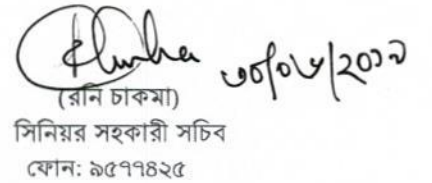 ৩০/০৬/২০১৯
(রনি চাকমা)
সিনিয়র সহকারী সচিব
ফোন: ৯৫৭৭৪২৫